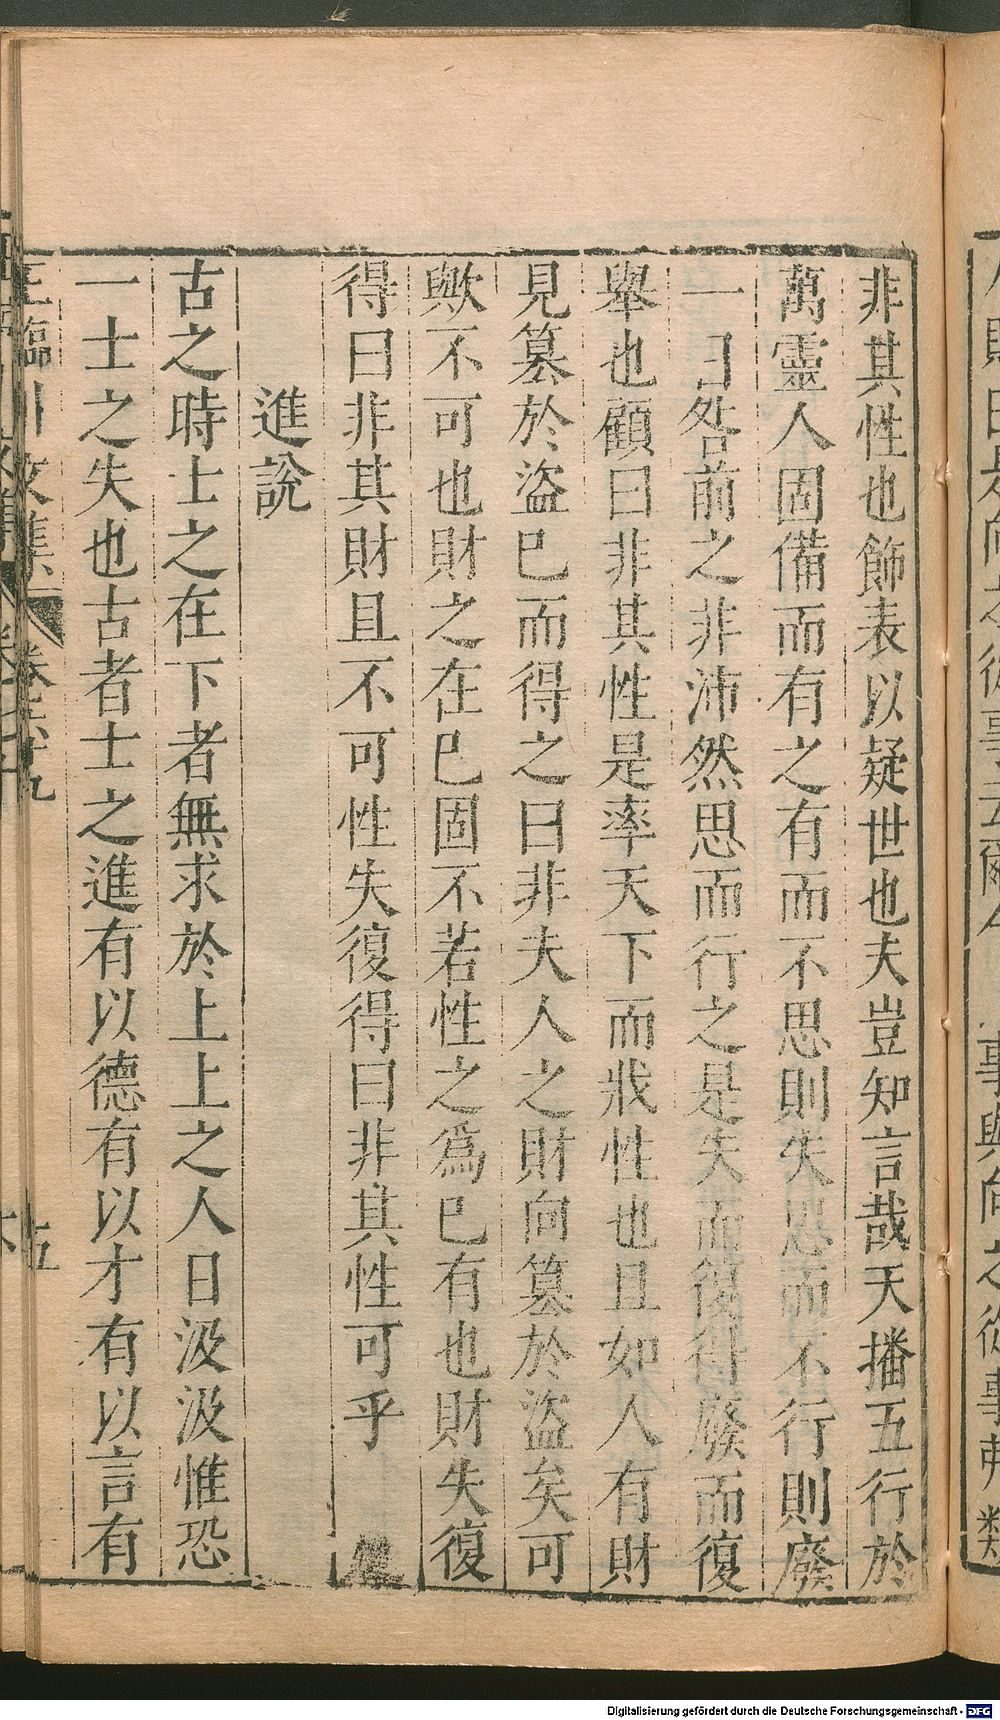 非其性也飾表以疑世也夫豈知言哉天播五行於
萬靈人固備而有之有而不思則失思而不行則廢
一日咎前之非沛然思而行之是失而復得廢而復
舉也顧曰非其性是率天下而戕性也且如人有財
見篡於盜已而得之曰非夫人之財向篡於盜矣可
歟不可也財之在已固不若性之爲已有也財失復
得曰非其財且不可性失復得曰非其性可乎
進說
古之時士之在下者無求於上上之人日汲汲惟恐
一士之失也古者士之進有以德有以才有以言有
王臨川文集
卷六十九
五
Digitalisierung gefördert durch die Deutsche Forschungsgemeinschaft - DFG